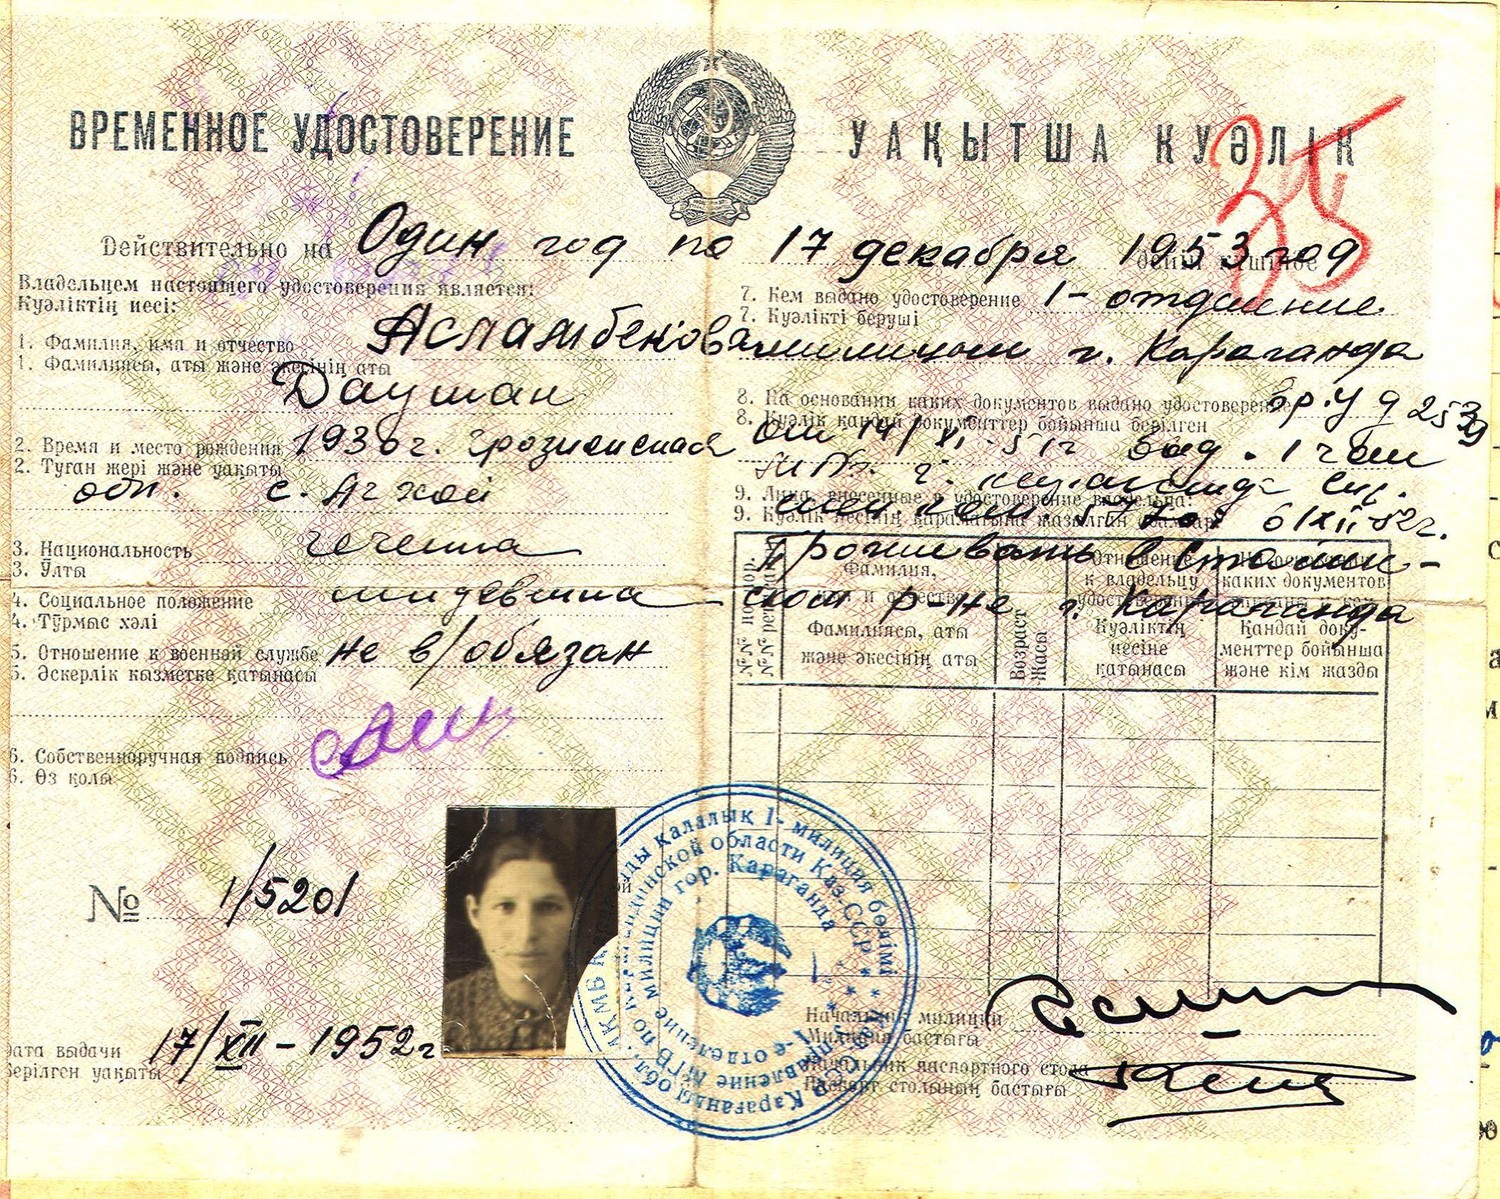 ВРЕМЕННОЕ УДОСТОВЕРЕНИЕ
УАҚЫТША КУӘЛІК
35
Действительно на Один год по 17 декабря 1953 год
Владельцем настоящего удостоверения является:
Куәліктің иесі:
1. Фамилия, имя и отчество Асламбекова
1. Фамилиясы, аты және әкесінің аты
Даушан
2. Время и место рождения 1936 г. Грозненская
2. Туған жері және уақыты
обл. с. Ачхой
3. Национальность чеченка
3. Ұлты
4. Социальное положение иждевенка
4. Тұрмыс халі
5. Отношение к военной службе не в/обязан
5. Әскерлік қызметке қатынасы
6. Собственноручная подпись
6. Өз қолы
№ 1/5201
Дата выдачи 17/XII-1952 г
Берілген уақыты
7. Кем выдано удостоверение 1-отделение
7. Куәлікті беруші
милиции г. Караганда
8. На основании каких документов выдано удостоверение вр. уд
8. Куәлік қандай документтер бойынша берілген
от 14/XI-51г выд. 1 гом
9. Лица, внесенные в удостоверение владельца:
9. Куәлік иесінің қарамағына жазылған адамдар
6/XII-52г.
Проживать в Сталин-
ском р-не г. Караганда
№№ по пор.
Фамилия, имя и отчество
Фамилиясы, аты және әкесінің аты
Возраст
Жасы
Отношение к владельцу удостоверения
Куәліктің иесіне қатынасы
каких документов
Қандай документтер бойынша және кім жазды
Начальник милиции
Милиция бастығы
Начальник паспортного стола
Паспорт столының бастығы
қалалық 1- милиция бөлімі
Карагандинской области Каз.ССР
1-е отделение милиции гор. Караганда
Управление МГБ по